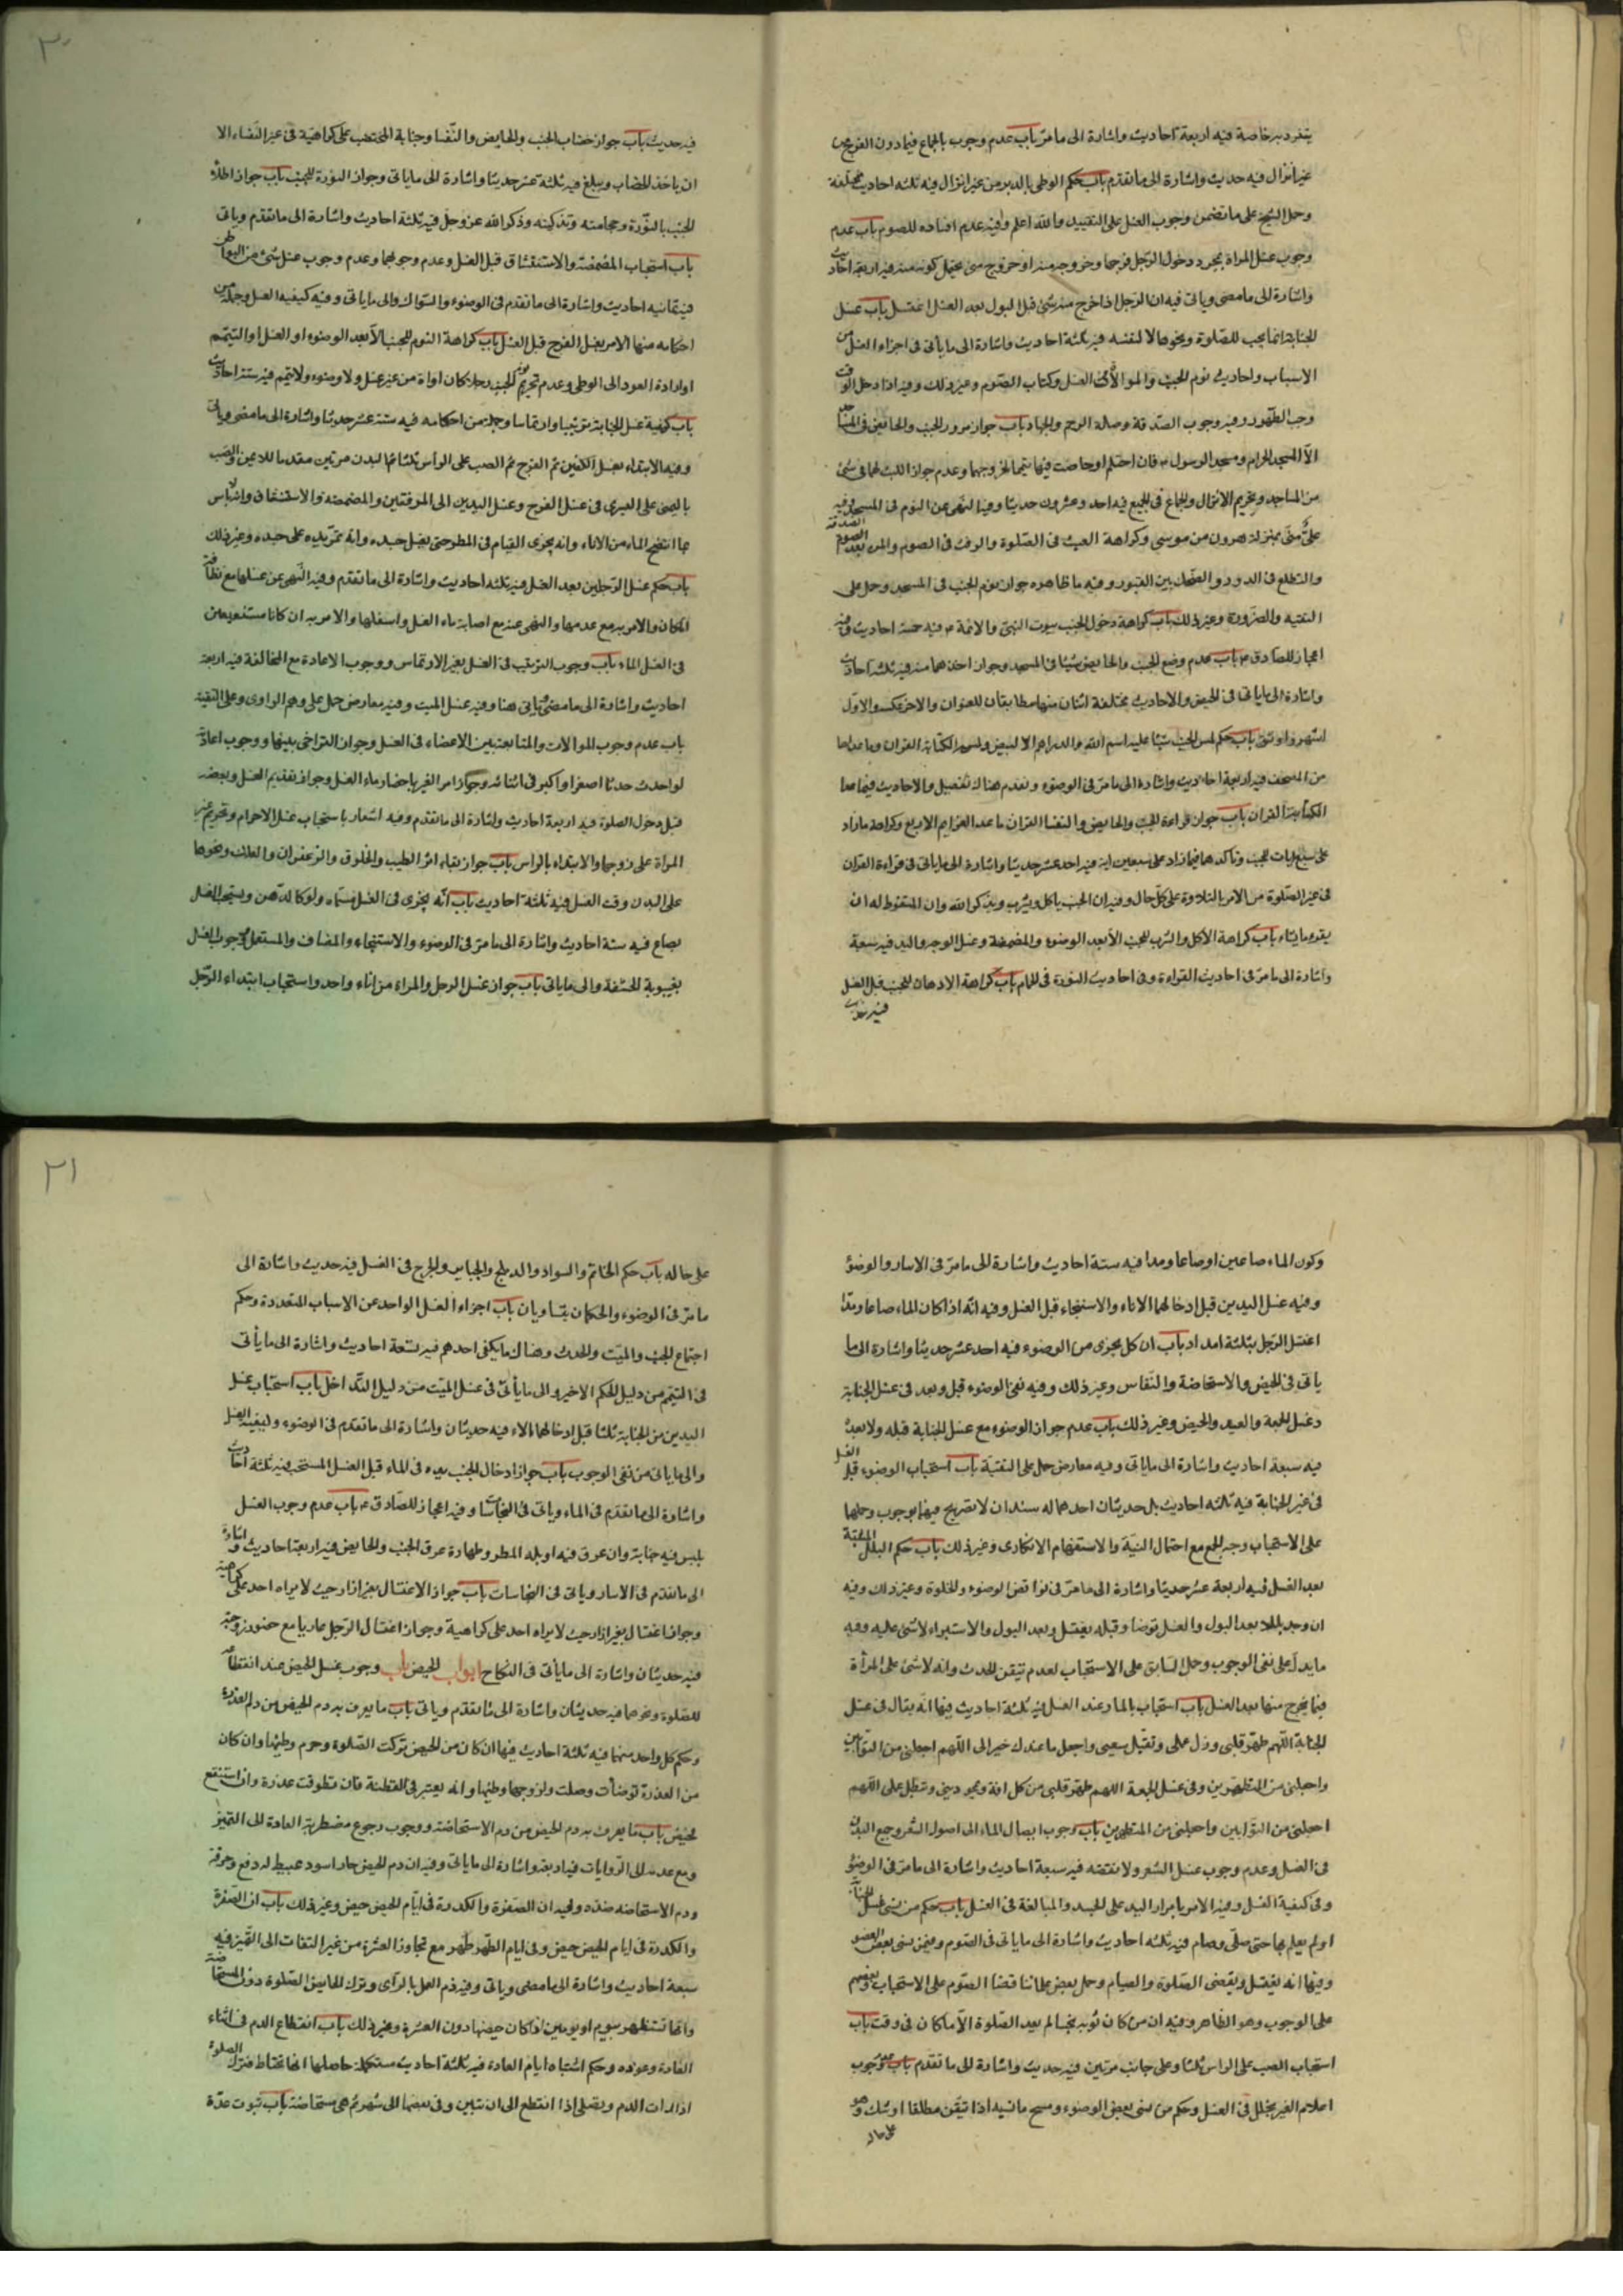 يتفرد برخاصة فيه اربعة احاديث واشارة الى ما مر باب عدم وجوب بالجماع فيما دون الفرج من
غير انزال فيه حديث واشارة الى ما تقدم باب حكم الوطى بالدبر من غير انزال فيه ثلثه احاديث مختلفة
وحمل الشيخ على ما تضمن وجوب الغسل على التقييد والله اعلم وفيه عدم افساده للصوم باب عدم
وجوب غسل المراة بمجرد دخول الرجل فرجها وخروجه منه او خروج منى يحتمل كونه منه فيه اربعة احاديث
واشارة الى ما مضى وياتى فيه ان الرجل اذا خرج منه شئ قبل البول بعد الغسل اغتسل باب غسل
الجنابة انما يجب للصلوة ونحوها لا لنفسه فيه ثلثة احاديث واشارة الى ما ياتى فى اجزاء الغسل من
الاسباب واحاديث نوم الجنب والموالاة فى الغسل وكتاب الصوم وغير ذلك وفيه اذا دخل الوقت
وجب الطهور وفيه وجوب الصدقة وصلة الرحم والجهاد باب جواز مرور الجنب والحائض فى المساجد
الا المسجد الحرام ومسجد الرسول ص فان احتلم او حاضت فيها تيمما لخروجهما وعدم جواز اللبث لهما فى شئ
من المساجد وتحريم الانزال والجماع فى الجميع فيه احد وعشرون حديثا وفيه النهى عن النوم فى المسجد وفيه
على منى بمنزلة هرون من موسى وكراهة العبث فى الصلوة والرفث فى الصوم والمن بعد الصدقة
والتطلع فى الدور والضحك بين القبور وفيه ما ظاهره جواز نوم الجنب فى المسجد وحمل على
التقية والضرورة وغير ذلك باب كراهة دخول الجنب بيوت النبى والائمة ع فيه خمسة احاديث وفيه
اعجاز للصادق ع باب عدم وضع الجنب والحايض شيئا فى المسجد وجواز اخذهما منه فيه ثلثة احاديث
واشارة الى ما ياتى فى الحيض والاحاديث مختلفة اثنان منها مطابقان للعنوان والاخر عكسه والاول
اشهر واوثق باب حكم لمس الجنب شيئا عليه اسم الله والدراهم الابيض ولمسه لكتابة القران وما عداها
من المصحف فيه اربعة احاديث واشارة الى ما مر فى الوضوء وتقدم هناك تفصيل والاحاديث فيما عدا
الكتابة القران باب جواز قراءة الجنب والحايض والنفسا القران ما عدا العزايم الاربع وكراهة ما زاد
على سبع ايات للجنب وتاكدها فيما زاد على سبعين اية فيه احد عشر حديثا واشارة الى ما ياتى فى قراءة القران
فى غير الصلوة من الامر بالتلاوة على كل حال وفيه ان الجنب ياكل ويشرب ويذكر الله وان المتغوط له ان
يقرء ما يشاء باب كراهة الاكل والشرب للجنب الا بعد الوضوء والمضمضة وغسل الوجه واليد فيه سبعة
واشارة الى ما مر فى احاديث القراءة وفى احاديث النورة فى الحمام باب كراهة الادهان للجنب قبل الغسل
فيه حديث
٣٠
فيه حديث باب جواز خضاب الجنب والحايض والنفسا وجنابة المختضب على كراهية فى غير النفساء الا
ان ياخذ الخضاب ويبلغ فيه ثلثة عشر حديثا واشارة الى ما ياتى وجواز النورة للجنب باب جواز اطلاء
الجنب بالنورة وحجامته وتذكيته وذكر الله عز وجل فيه ثلثة احاديث واشارة الى ما تقدم وياتى
باب استحباب المضمضة والاستنشاق قبل الغسل وعدم وجوبهما وعدم وجوب غسل شئ من البواطن
فيه ثمانيه احاديث واشارة الى ما تقدم فى الوضوء والسواك والى ما ياتى وفيه كيفية الغسل وجملة من
احكامه منها الامر بغسل الفرج قبل الغسل باب كراهة النوم للجنب الا بعد الوضوء او الغسل او التيمم
او ارادة العود الى الوطى وعدم تحريم نوم الجنب رجلا كان او امراة من غير غسل ولا وضوء ولا تيمم فيه ستة احاديث
باب كيفية غسل الجنابة ترتيبا وارتماسا وجملة من احكامه فيه ستة عشر حديثا واشارة الى ما مضى وياتى
وفيه الابتداء بغسل الكفين ثم الفرج ثم الصب على الراس ثلثا ثم البدن مرتين مقدما للايمن والصب
باليمنى على اليسرى فى غسل الفرج وغسل اليدين الى المرفقين والمضمضة والاستنشاق ولا باس
بما انتضح الماء من الاناء وانه يجزى القيام فى المطر حتى يغسل جسده وانه تمر يده على جسده وغير ذلك
باب حكم غسل الرجلين بعد الغسل فيه ثلثة احاديث واشارة الى ما تقدم وفيه النهى عن غسلها مع نظافة
المكان والامر به مع عدمها والنهى عنه مع اصابة ماء الغسل واسفلها والامر به ان كانا مستنقعين
فى الغسل الماء باب وجوب الترتيب فى الغسل بغير الارتماس ووجوب الاعادة مع المخالفة فيه اربعة
احاديث واشارة الى ما مضى وياتى هنا وفيه غسل الميت وفيه معارض حمل على وهم الراوى وعلى التقية
باب عدم وجوب الموالات والمتابعة بين الاعضاء فى الغسل وجواز التراخى بينها ووجوب اعادته
لو احدث حدثا اصغر او اكبر فى اثنائه وجواز امر الغير باحضار ماء الغسل وجواز تقديم الغسل وبعضه
قبل دخول الصلوة فيه اربعة احاديث واشارة الى ما تقدم وفيه اشعار باستحباب غسل الاحرام وتحريم غيرة
المراة على زوجها والابتداء بالراس باب جواز بقاء اثر الطيب والخلوق والزعفران والعلك ونحوها
على البدن وقت الغسل فيه ثلثة احاديث باب انه يجزى فى الغسل مسماه ولو كالدهن ويستحب الغسل
بصاع فيه ستة احاديث واشارة الى ما مر فى الوضوء والاستنجاء والمضاف والمستعمل ووجوب الغسل
بغيبوبة الحشفة والى ما ياتى باب جواز غسل الرجل والمراة من اناء واحد واستحباب ابتداء الرجل
وكون الماء صاعين او صاعا ومدا فيه ستة احاديث واشارة الى ما مر فى الاسار والوضوء
وفيه غسل اليدين قبل ادخالهما الاناء والاستنجاء قبل الغسل وفيه انه اذا كان الماء صاعا ومدا
اغتسل الرجل بثلثة امداد باب ان كل يجزى من الوضوء فيه احد عشر حديثا واشارة الى ما
ياتى فى الحيض والاستحاضة والنفاس وغير ذلك وفيه نفى الوضوء قبل وبعد فى غسل الجنابة
وغسل الجمعة والعيد والحيض وغير ذلك باب عدم جواز الوضوء مع غسل الجنابة قبله ولا بعده
فيه سبعة احاديث واشارة الى ما ياتى وفيه معارض حمل على التقية باب استحباب الوضوء قبل الغسل
فى غير الجنابة فيه ثلثه احاديث بل حديثان احدهما له سندان لا تصريح فيها بوجوب وحملها
على الاستحباب وجه الجمع مع احتمال النية والاستفهام الانكارى وغير ذلك باب حكم البلل المشتبه
بعد الغسل فيه اربعة عشر حديثا واشارة الى ما مر فى نواقض الوضوء والخلوة وغير ذلك وفيه
ان وجد بللا بعد البول والغسل توضا وقبله يغتسل وبعد البول والاستبراء لا شئ عليه وفيه
ما يدل على نفى الوجوب وحمل السابق على الاستحباب لعدم تيقن الحدث وانه لا شئ على المراة
فيما يخرج منها بعد الغسل باب استحباب بالماء عند الغسل فيه ثلثة احاديث فيها انه يقال فى غسل
الجنابة اللهم طهر قلبى وزك عملى وتقبل سعيى واجعل ما عندك خير الى اللهم اجعلنى من التوابين
واجعلنى من المتطهرين وفى غسل الجمعة اللهم طهر قلبى من كل افة تمحو دينى وتبطل عملى اللهم
اجعلنى من التوابين واجعلنى من المتطهرين باب وجوب ايصال الماء الى اصول الشعر وجميع البدن
فى الغسل وعدم وجوب غسل الشعر ولا نقضه فيه سبعة احاديث واشارة الى ما مر فى الوضوء
وفى كيفية الغسل وفيه الامر بامرار اليد على الجسد والمبالغة فى الغسل باب حكم من نسى غسل الجنابة
او لم يعلم بها حتى صلى وصام فيه ثلثه احاديث واشارة الى ما ياتى فى الصوم وفيمن نسى بعض العضو
وفيها انه يغتسل ويقضى الصلوة والصيام وحمل بعض علمائنا قضا الصوم على الاستحباب وبعضهم
على الوجوب وهو الظاهر وفيه ان من كان ثوبه نجسا لم يعد الصلوة الا ما كان فى وقت باب
استحباب الصب على الراس ثلثا وعلى جانب مرتين فيه حديث واشارة الى ما تقدم باب عدم وجوب
اعلام الغير بخلل فى الغسل وحكم من نسى بعض الوضوء ومسح ما نسيه اذا تيقن مطلقا او شك وهو
على حاله
٣١
على حاله باب حكم الخاتم والسواد والدملج والجبائر والجرح فى الغسل فيه حديث واشارة الى
ما مر فى الوضوء والحكمان يتساويان باب اجزاء الغسل الواحد عن الاسباب المتعددة وحكم
اجتماع الجنب والميت والمحدث وهناك ما يكفى احدهم فيه تسعة احاديث واشارة الى ما يأتى
فى التيمم من دليل الحكم الاخير والى ما يأتى فى غسل الميت من دليل التداخل باب استحباب غسل
اليدين من الجنابة ثلثا قبل ادخالهما الاناء فيه حديثان واشارة الى ما تقدم فى الوضوء ولبقية الغسل
والى ما ياتى من نفى الوجوب باب جواز ادخال الجنب يده فى الماء قبل الغسل المستحب فيه ثلثة احاديث
واشارة الى ما تقدم فى الماء وياتى فى النجاسات وفيه اعجاز للصادق ع باب عدم وجوب الغسل
بلبس فيه جنابة وان عرق فيه او بله المطر وطهارة عرق الجنب والحايض فيه اربعة احاديث واشارة
الى ما تقدم فى الاسار وياتى فى النجاسات باب جواز الاغتسال بغير ازار حيث لا يراه احد على كراهية
وجواز اغتسال بغير ازار حيث لا يراه احد على كراهية وجواز اغتسال الرجل عاريا مع حضور زوجته
فيه حديثان واشارة الى ما يأتى فى النكاح ابواب الحيض باب وجوب غسل الحيض عند انقطاعه
للصلوة ونحوها فيه حديثان واشارة الى ما تقدم وياتى باب ما يعرف به دم الحيض من دم العذرة
وحكم كل واحد منهما فيه ثلثة احاديث فيها ان كان من الحيض تركت الصلوة وحرم وطيها وان كان
من العذرة توضأت وصلت ولزوجها وطيها وانه يعتبر فى القطنة فان تطوقت عذرة وان استنقع
فحيض باب ما يعرف به دم الحيض من دم الاستحاضة ووجوب رجوع مضطربة العادة الى التميز
ومع عدمه الى الروايات فيه اربعة واشارة الى ما ياتى وفيه ان دم الحيض حار اسود عبيط له دفع وحرقة
ودم الاستحاضة ضده وفيه ان الصفرة والكدرة فى ايام الحيض حيض وغير ذلك باب ان الصفرة
والكدرة فى ايام الحيض حيض وفى ايام الطهر طهر مع تجاوز العشرة من غير التفات الى التميز فيه
سبعة احاديث واشارة الى ما مضى وياتى وفيه ذم العمل بالراى وترك الحايض الصلوة دون المستحاضة
وانها تستظهر بيوم او يومين اذا كان حيضها دون العشرة وغير ذلك باب انقطاع الدم فى اثناء
العادة وعوده وحكم اشتباه ايام العادة فيه ثلثة احاديث مستكملة حاصلها انها تحتاط فتترك الصلوة
اذا رات الدم وتصلى اذا انقطع الى ان تتبين وفى بعضها الى شهر ثم هى مستحاضة باب ثبوت عدة